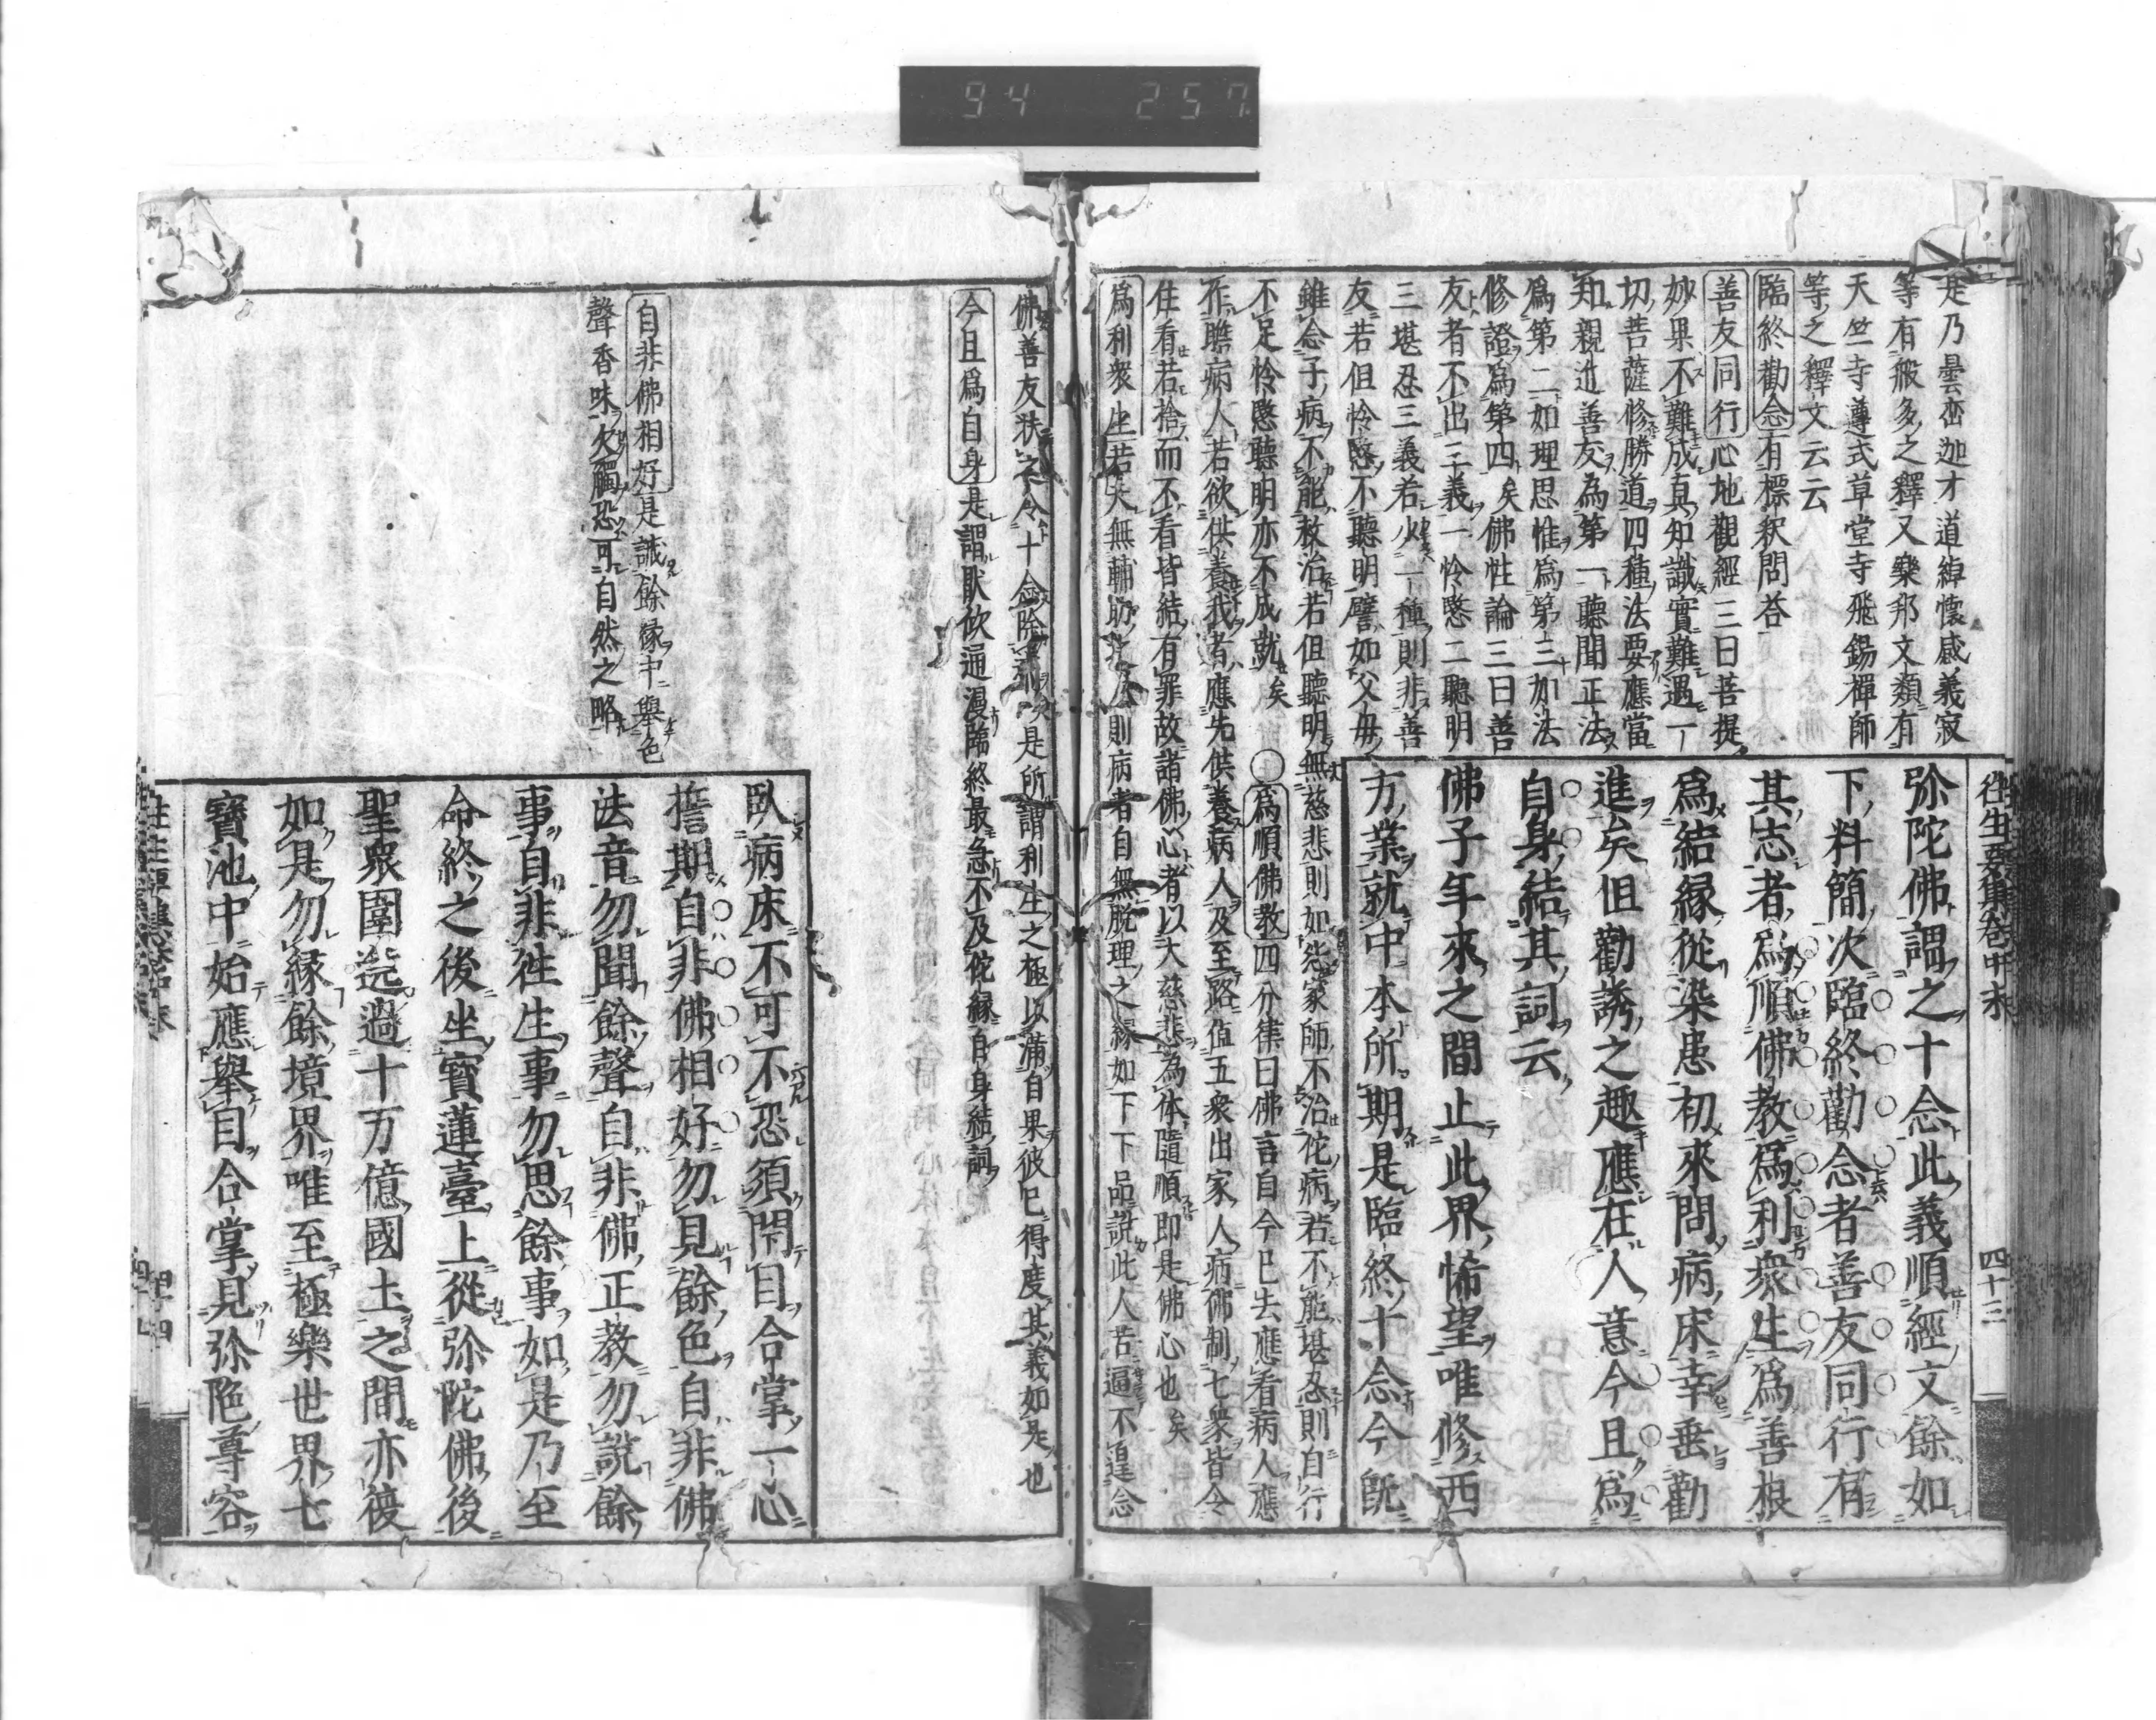 94 257
往生要集卷中末 四十三
是乃曇鸞迦才道綽懷感義寂
等有般多之釋又樂邦文類有
天竺寺遵式草堂寺飛錫禪師
等之釋文云云
臨終勸念有標釈問答
善友同行心地觀經三曰菩提
妙果不難成真知識實難遇一
切菩薩修勝道四種法要應當
知親近善友為第一聽聞正法
爲第二如理思惟爲第三如法
修證爲第四矣佛性論三曰善
友者不出三義一怜愍二聽明
三堪忍三義若少一種則非善
友若但怜愍不聽明譬如父母
雖念子病不能救治若但聽明無慈悲則如怨家師不治佗病若不能堪忍則自行
不足怜愍聽明亦不成就矣 ○爲順佛教四分律曰佛言自今已去應看病人應
作瞻病人若欲供養我者應先供養病人乃至路值五衆出家人病佛制七衆皆令
住看若捨而不看皆結有罪故諸佛心者以大慈悲為体隨順即是佛心也矣
爲利衆生若夫無輔助則病者自無脫理之緣如下下品說此人苦逼不遑念
弥陀佛謂之十念此義順經文餘如
下料簡次臨終勸念者善友同行有
其志者爲順佛教爲利衆生爲善根
爲結緣從染患初來問病床幸垂勸
進矣但勸誘之趣應在人意今且爲
自身結其詞云
佛子年來之間止此界悕望唯修西
方業就中本所期是臨終十念今既
佛善友扶之令十念除是所謂利生之極以滿自果彼已得度其義如是也
今且爲自身是謂猒欣通漫臨終最急不及佗緣自身結詞
自非佛相好是誡餘緣中舉色
聲香味欠觸恐可自然之略
臥病床不可不恐須閇目合掌一心
誓期自非佛相好勿見餘色自非佛
法音勿聞餘聲自非佛正教勿說餘
事自非徃生事勿思餘事如是乃至
命終之後坐寶蓮臺上從弥陀佛後
聖衆圍遶過十万億國土之間亦復
如是勿緣餘境界唯至極樂世界七
寶池中始應舉目合掌見弥陁尊容
四十四